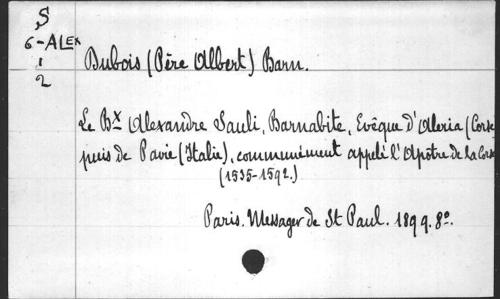 S
6-ALEX
1
2
Dubois (Père Albert) Barn.
Le Bx Alexandre Sauli, Barnabite, Evêque d'Aleria (Corse
puis de Pavie (Italie), communément appelé l'Apôtre de la Corse
(1535-1592.)
Paris. Messager de St Paul. 1899. 8º.